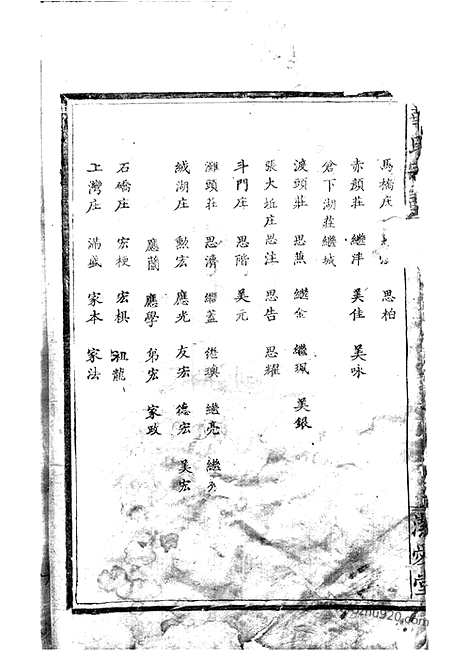 馬橋庄 思柏
赤顏莊 繼洋 美佳 美咏
倉下湖莊 繼城
渡頭莊 思蕉 繼金 繼珮 美銀
張大坵庄 思注 思告 思耀
斗門庄 思階 美元
灘頭莊 思濟 繼蓋 繼璵 繼亮 繼
絨湖庄 勲宏 應光 友宏 德宏 美宏
應蘭 應學 弟宏 家政
石礄庄 宏梗 宏棋 龍
工灣庄 滿盛 家本 家法